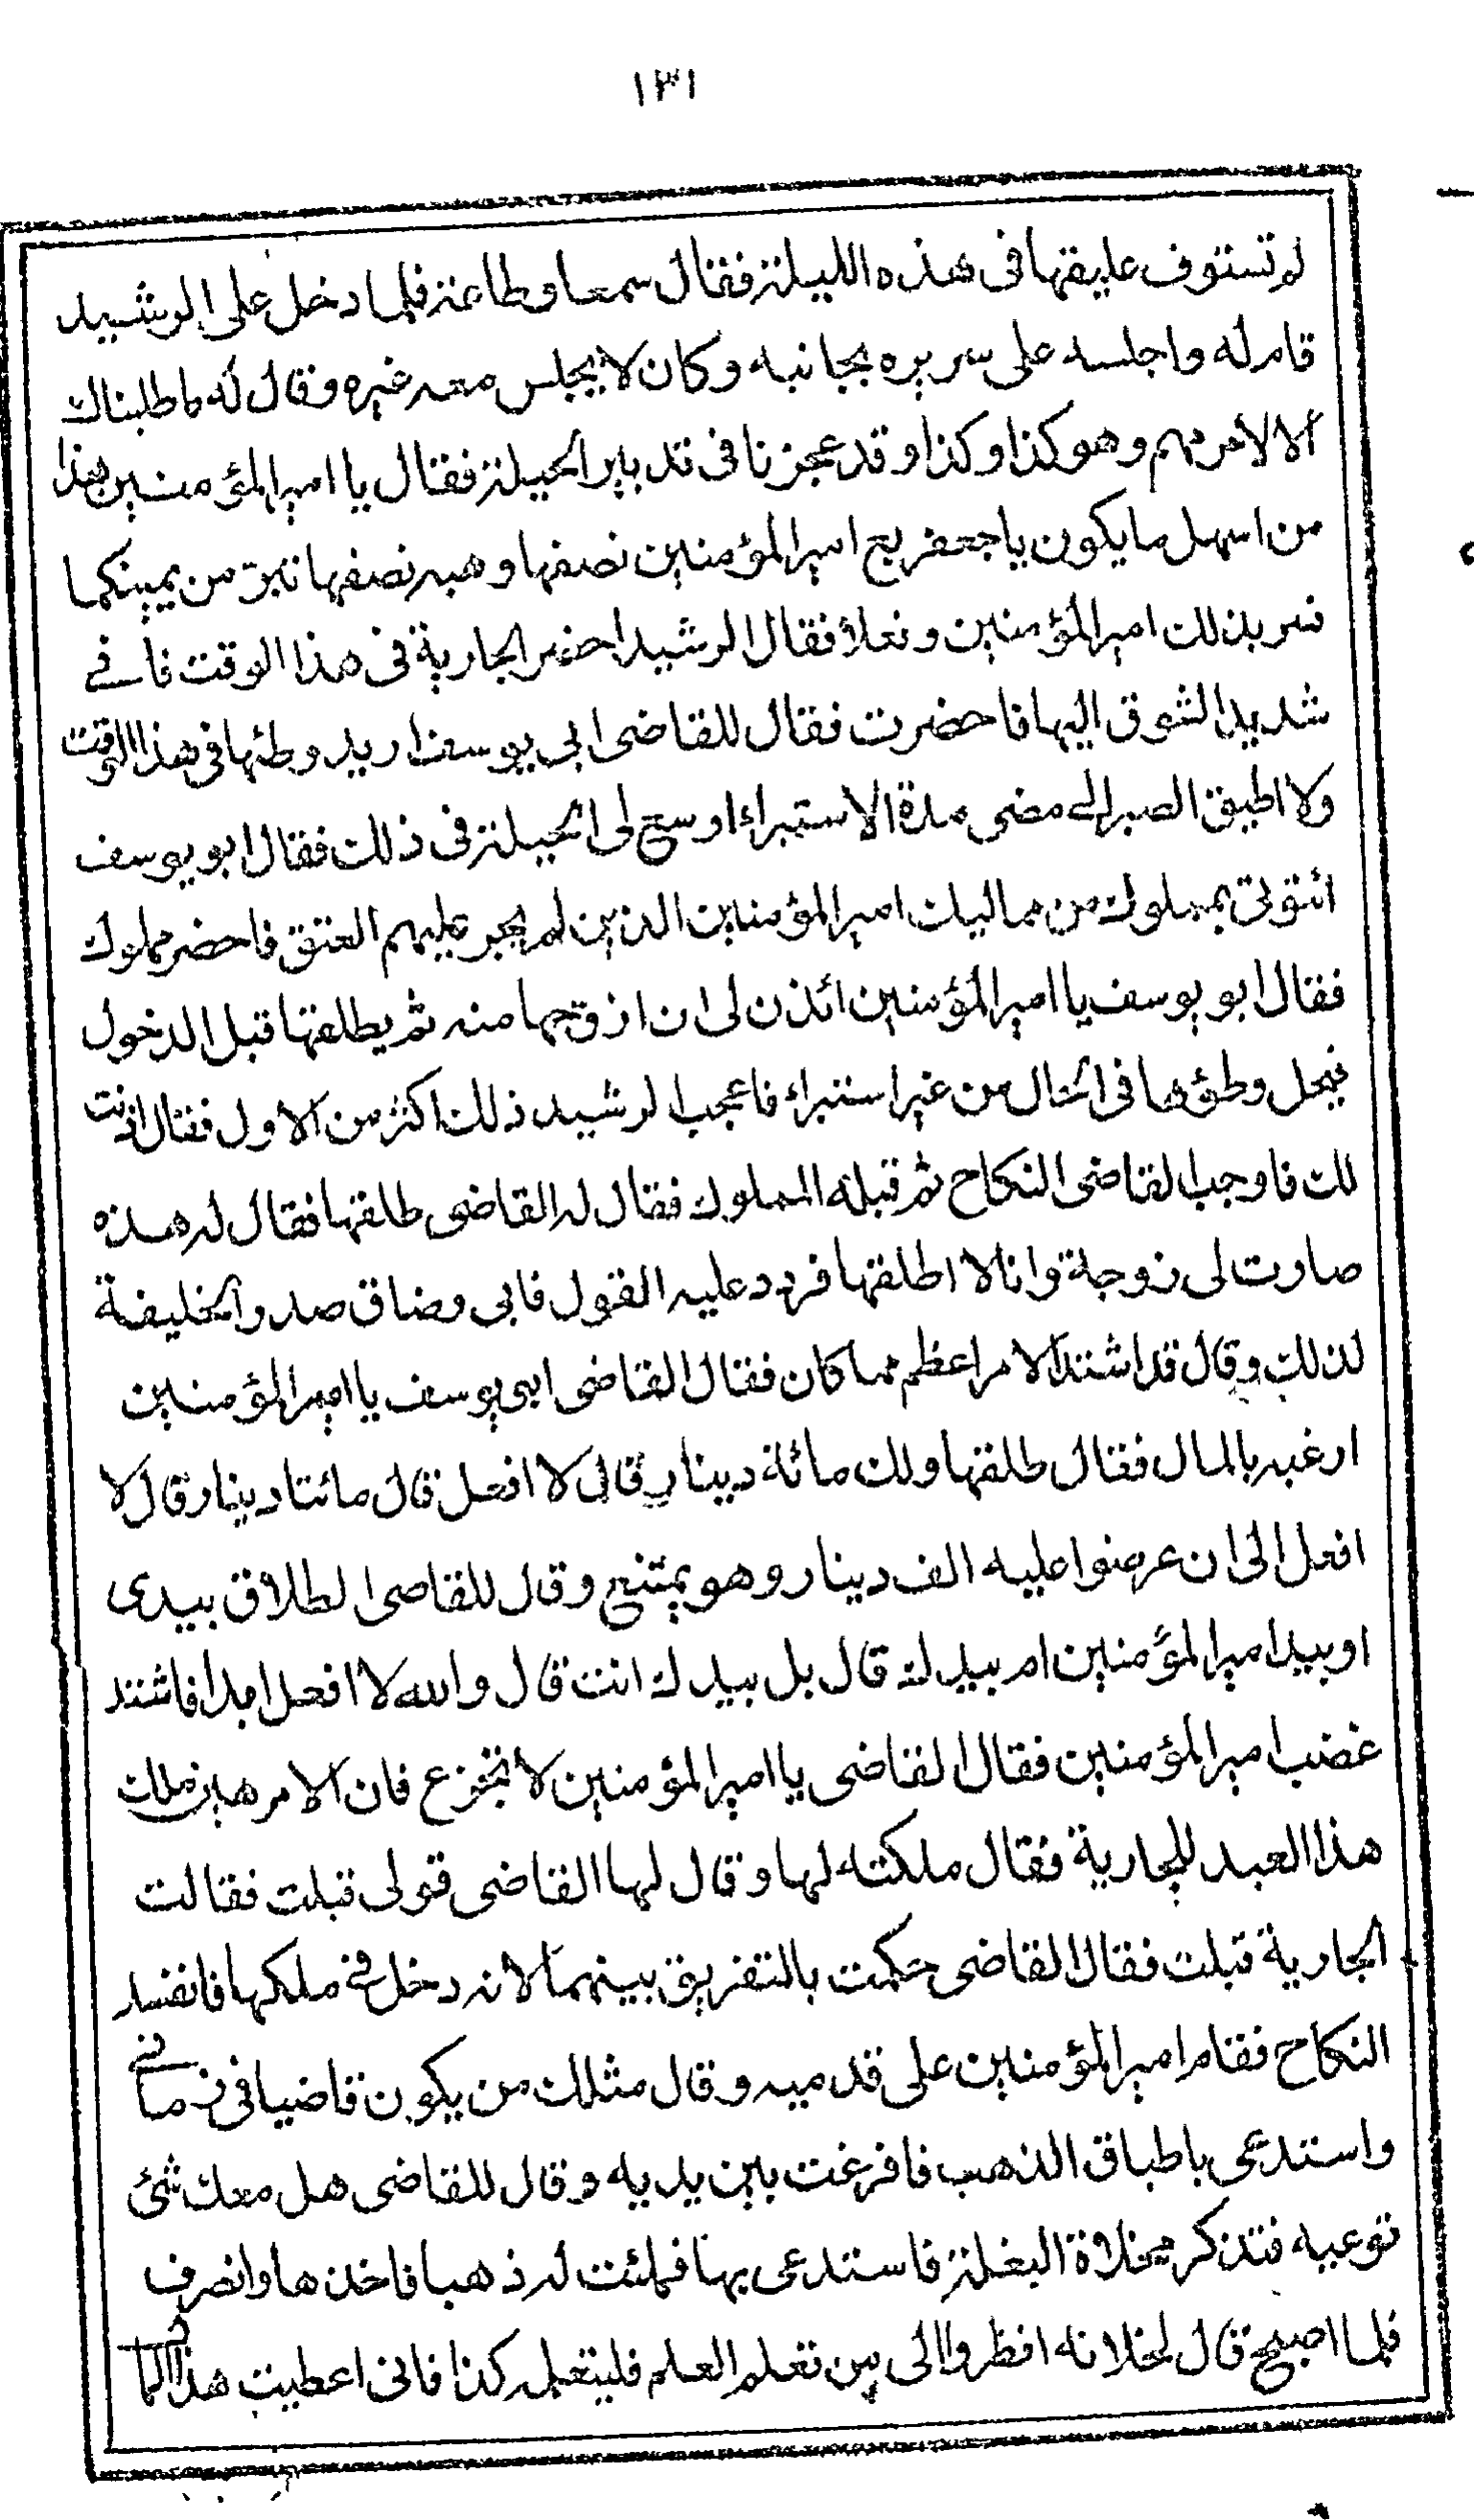 ١٣١
لم تستوف عليقتها فى هذه الليلة فقال سمعا وطاعة فلما دخل على الرشيد
قام له واجلسه على سريره بجانبه وكان لا يجلس معه غيره وقال له ما طلبناك
الا لامر مهم وهو كذا وكذا وقد عجزنا فى تدبير الحيلة فقال يا امير المؤمنين هذا
من اسهل ما يكون يا جعفر بع امير المؤمنين نصفها وهبه نصفها تبرّ من يمينكما
فسر بذلك امير المؤمنين وفعلا فقال الرشيد احضر الجارية فى هذا الوقت فانى
شديد الشوق اليها فاحضرت فقال للقاضى ابى يوسف اريد وطئها فى هذا الوقت
ولا اطيق الصبر الى مضى مدة الاستبراء اوسع لى الحيلة فى ذلك فقال ابو يوسف
ائتونى بمملوك من مماليك امير المؤمنين الذين لم يجر عليهم العتق فاحضر مملوك
فقال ابو يوسف يا امير المؤمنين ائذن لى ان ازوجها منه ثم يطلقها قبل الدخول
فيحل وطؤها فى الحال من غير استبراء فاعجب الرشيد ذلك اكثر من الاول فقال اذنت
لك فاوجب القاضى النكاح ثم قبله المملوك فقال له القاضى طلقها فقال له هذه
صارت لى زوجة وانا لا اطلقها فردد عليه القول فابى وضاق صدر الخليفة
لذلك وقال قد اشتد الامر اعظم مما كان فقال القاضى ابى يوسف يا امير المؤمنين
ارغبه بالمال فقال طلقها ولك مائة دينار قال لا افعل قال مائتا دينار قال لا
افعل الى ان عرضوا عليه الف دينار وهو يمتنع وقال للقاضى الطلاق بيدى
او بيد امير المؤمنين ام بيدك قال بل بيدك انت قال والله لا افعل ابدا فاشتد
غضب امير المؤمنين فقال القاضى يا امير المؤمنين لا تجزع فان الامر هين ملك
هذا العبد للجارية فقال ملكته لها وقال لها القاضى قولى قبلت فقالت
الجارية قبلت فقال القاضى حكمت بالتفريق بينهما لانه دخل فى ملكها فانفسد
النكاح فقام امير المؤمنين على قدميه وقال مثلك من يكون قاضيا فى زمانى
واستدعى باطباق الذهب فافرغت بين يديه وقال للقاضى هل معك شئ
توعيه فتذكر مخلاة البغلة فاستدعى بها فملئت له ذهبا فاخذها وانصرف
فلما اصبح قال لخلانه انظروا الى من تعلم العلم فليتعلمه كذا فانى اعطيت هذا المال